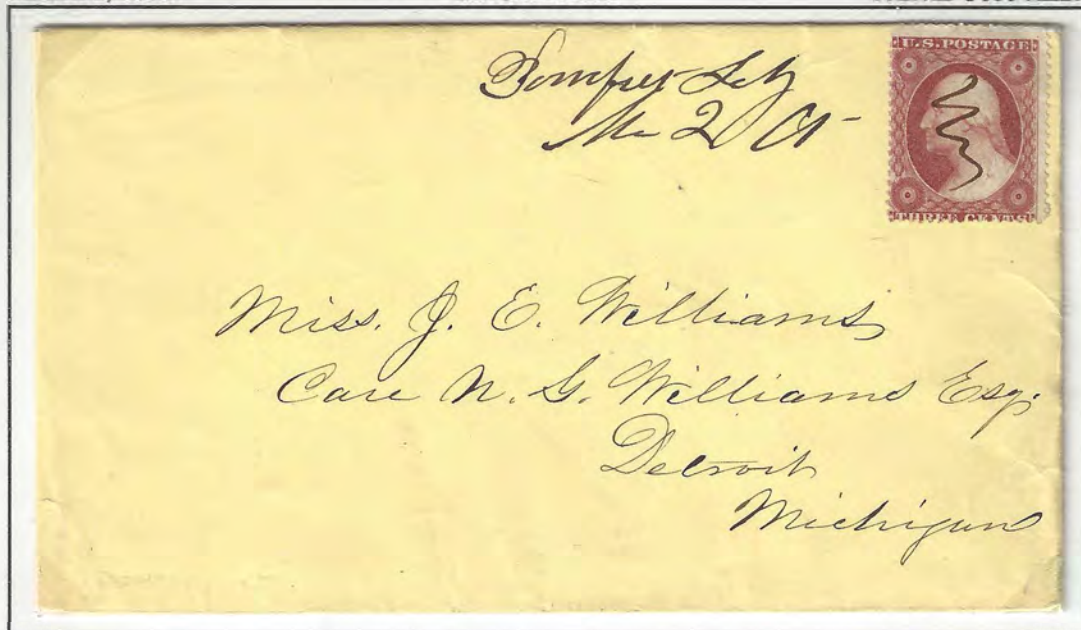 Pomfret
20 Ct
U.S. POSTAGE
THREE CENTS
Miss. J. E. Williams
Care N. G. Williams Esq.
Detroit
Michigan